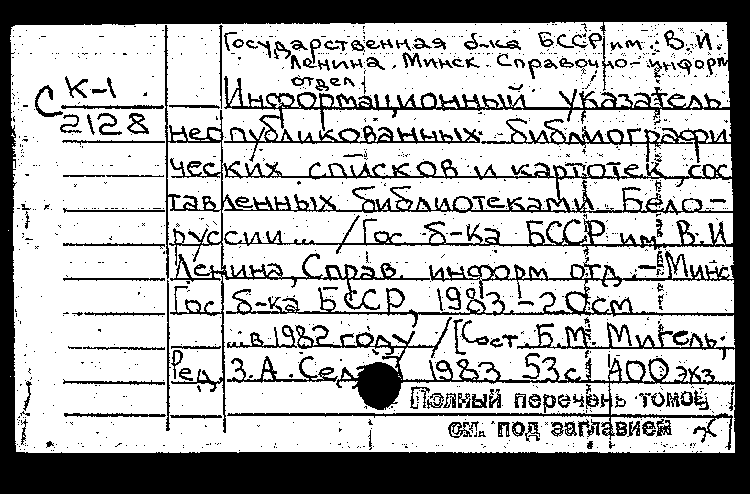 Государственная б-ка БССР им. В.И.
Ленина. Минск. Справочно-информ
отдел.
С К-1
2128
Информационный указатель
неопубликованных библиографи
ческих списков и картотек, сос
тавленных библиотеками Бело-
руссии... /Гос б-ка БССР им. В.И
Ленина, Справ. информ отд. - Минск
Гос б-ка БССР, 1983.-20см
...в 1982 году / [Сост. Б.М. Мигель;
Ред. З.А. 1983 53с. 400 экз
Полный перечень томов
см. под заглавием